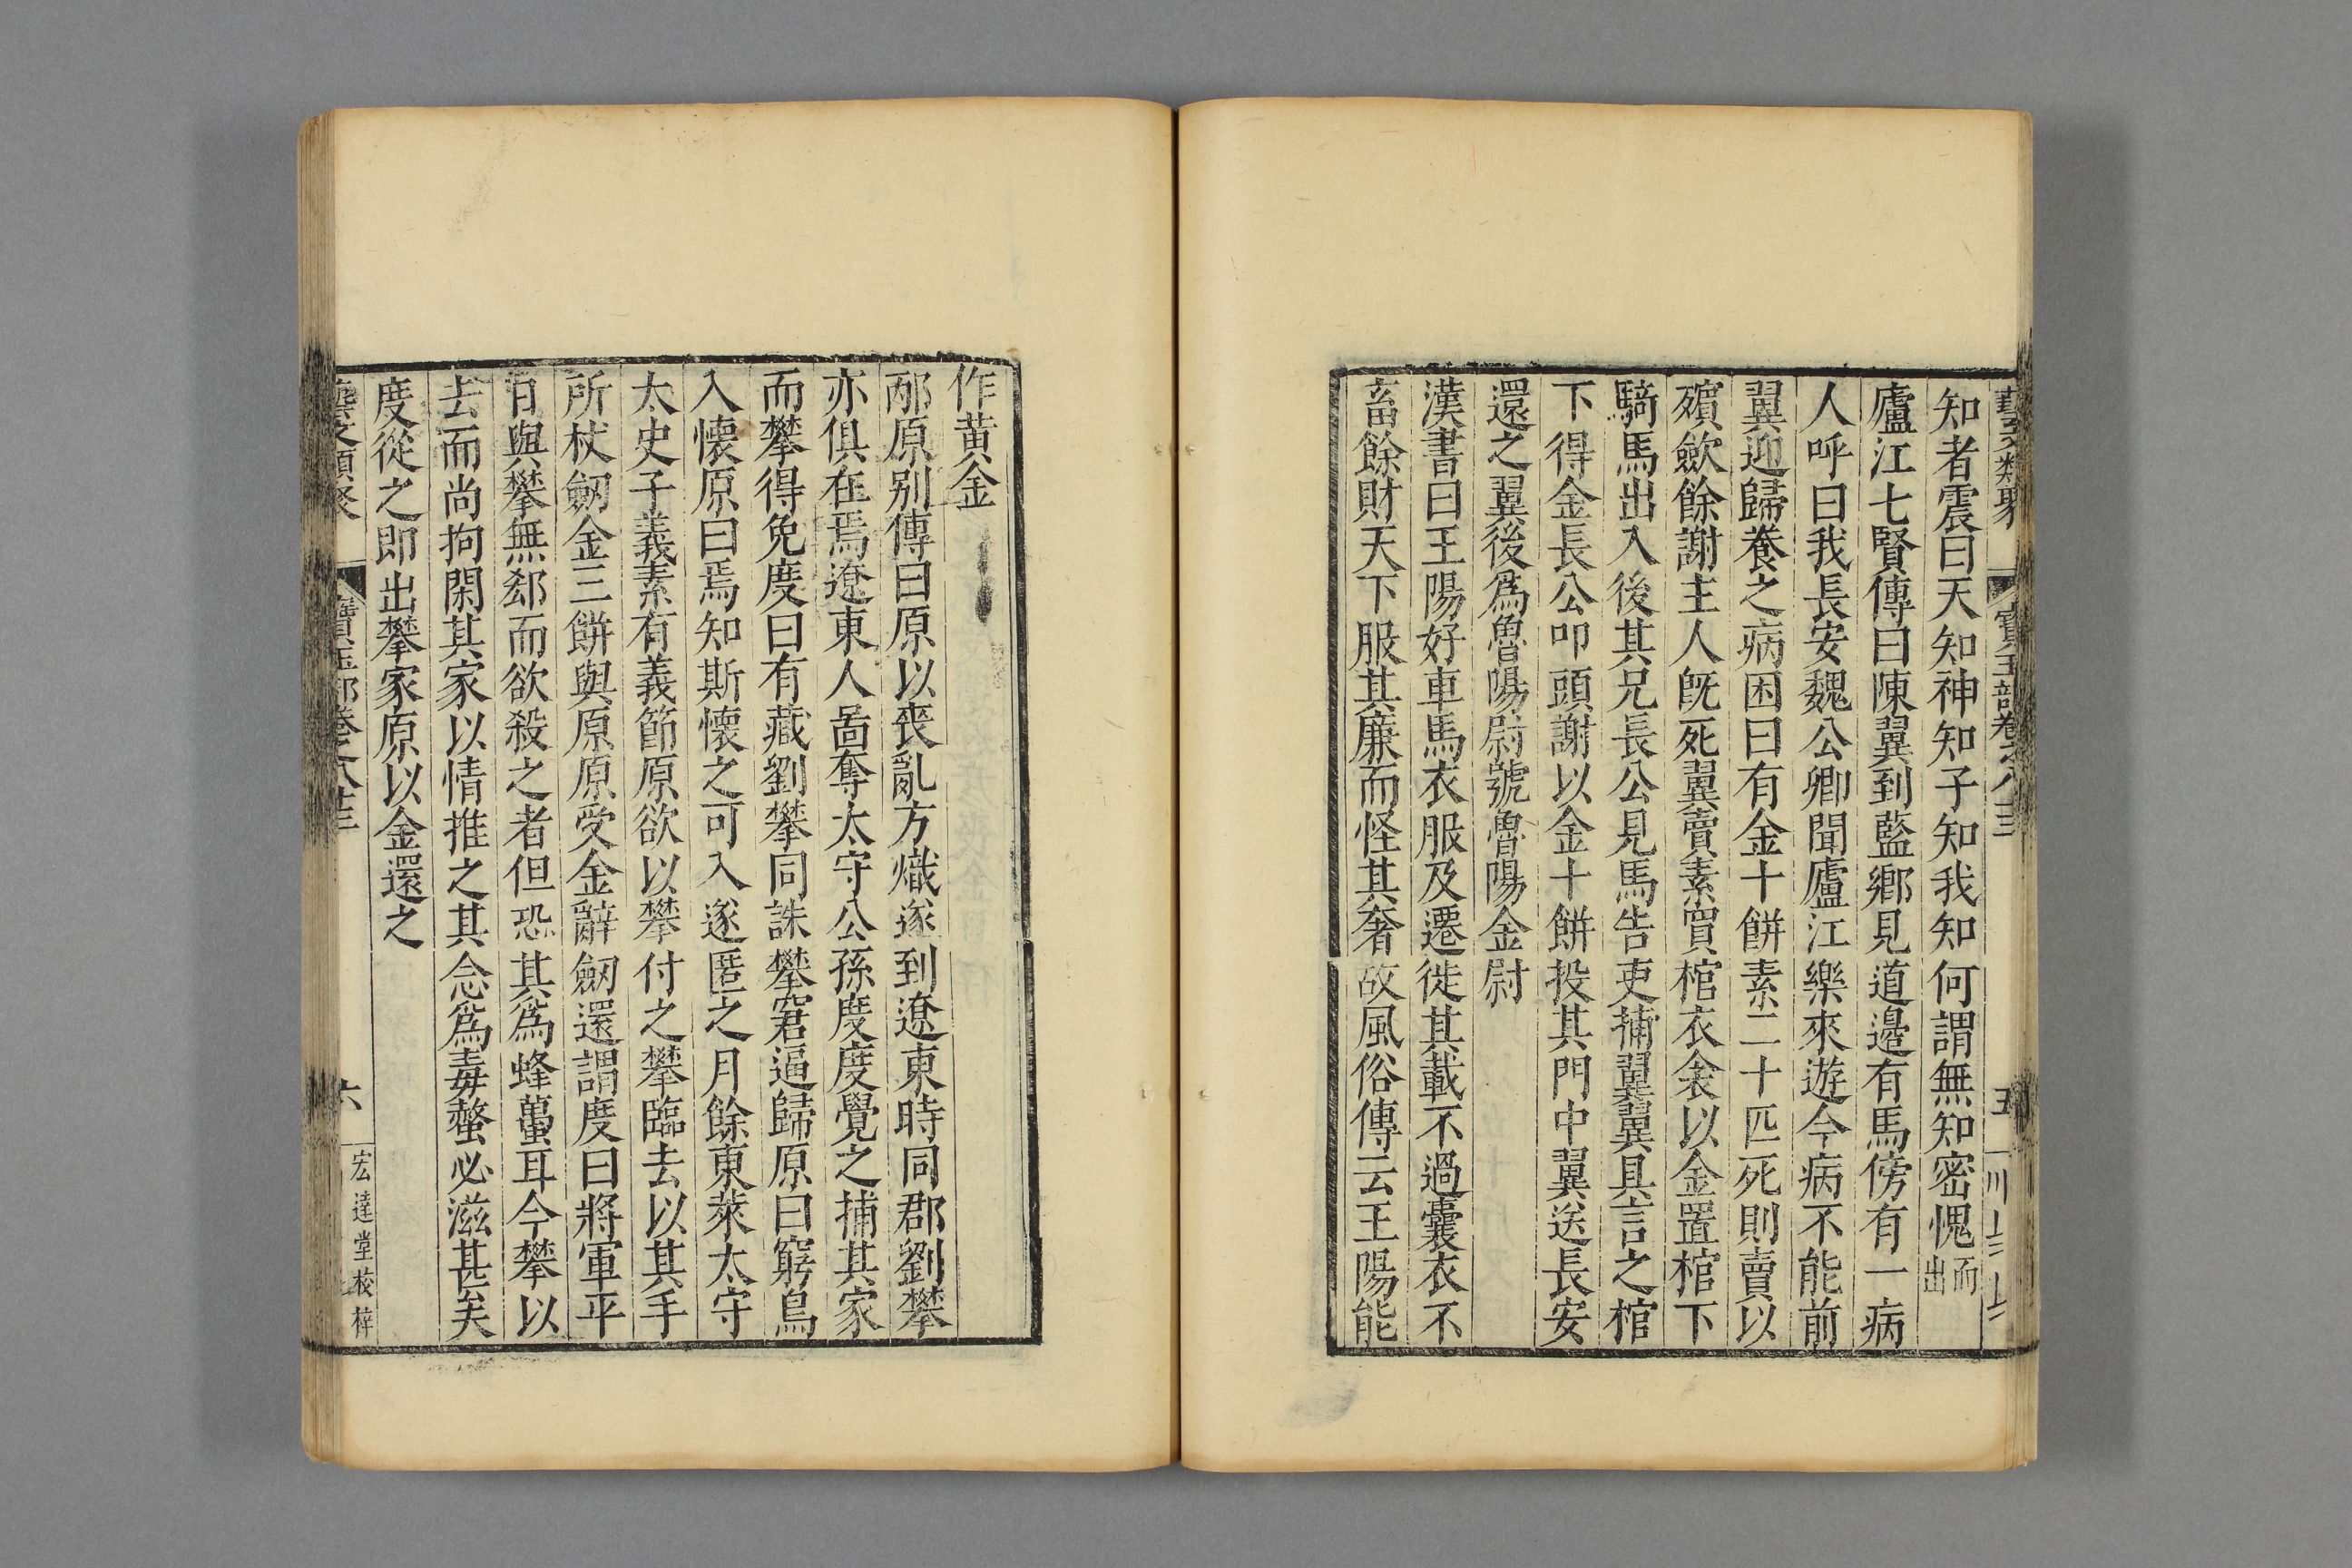 藝文類聚 寶玉部卷之八十三 五
知者震曰天知神知子知我知何謂無知密愧而出
廬江七賢傳曰陳翼到藍鄉見道邊有馬傍有一病
人呼曰我長安魏公卿聞廬江樂來遊今病不能前
翼迎歸養之病困曰有金十餅素二十匹死則賣以
殯歛餘謝主人旣死翼賣素買棺衣衾以金置棺下
騎馬出入後其兄長公見馬告吏捕翼翼具言之棺
下得金長公叩頭謝以金十餅投其門中翼送長安
還之翼後爲魯陽尉號魯陽金尉
漢書曰王陽好車馬衣服及遷徙其載不過囊衣不
畜餘財天下服其廉而怪其奢故風俗傳云王陽能
作黄金
邴原别傳曰原以喪亂方熾遂到遼東時同郡劉攀
亦俱在焉遼東人啚奪太守公孫度度覺之捕其家
而攀得免度曰有藏劉攀同誅攀窘逼歸原曰窮鳥
入懷原曰焉知斯懷之可入遂匿之月餘東萊太守
太史子義素有義節原欲以攀付之攀臨去以其手
所杖劒金三餅與原原受金辭劒還謂度曰將軍平
日與攀無郄而欲殺之者但恐其爲蜂蠆耳今攀以
去而尚拘閑其家以情推之其念爲毒螫必滋甚矣
度從之即出攀家原以金還之
藝文類聚 寶玉部卷之八十三 六 宏達堂校梓